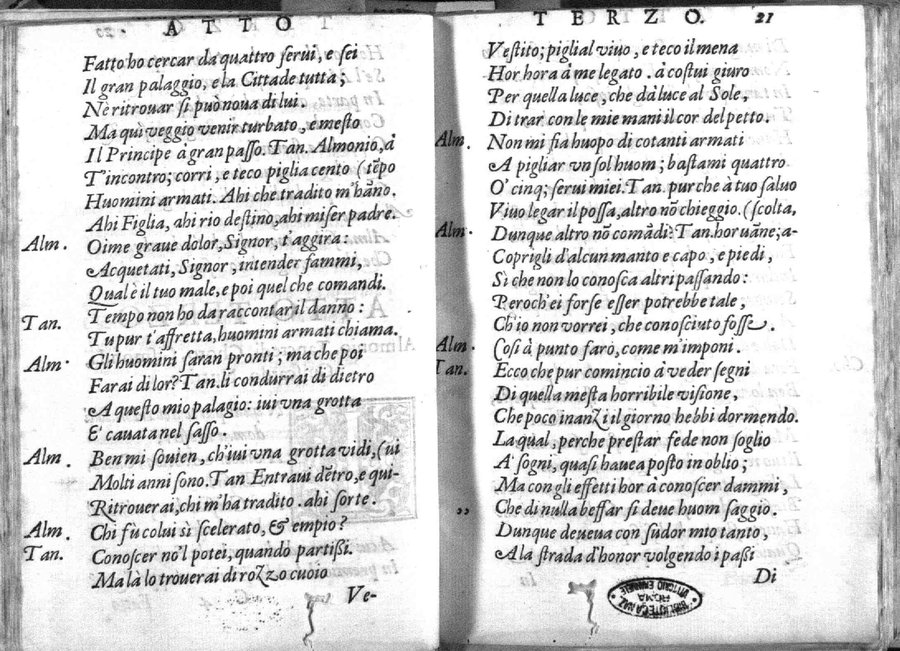 ATTO
Fatto ho cercar da quattro serui, e sei
Il gran palaggio, e la Cittade tutta;
Nè ritrouar si può noua di lui.
Ma quì veggio venir turbato, e mesto
Il Principe à gran passo. Tan. Almonio, à
T'incontro; corri, e teco piglia cento (tẽpo
Huomini armati. Ahi che tradito m'hãno.
Ahi Figlia, ahi rio destino, ahi miser padre.
Alm. Oime graue dolor, Signor, t'aggira:
Acquetati, Signor, intender fammi,
Qual è il tuo male, e poi quel che comandi.
Tan. Tempo non ho da raccontar il danno:
Tu pur t'affretta, huomini armati chiama.
Alm. Gli huomini saran pronti; ma che poi
Farai di lor? Tan. li condurrai di dietro
A questo mio palagio: iui vna grotta
E' cauata nel sasso.
Alm. Ben mi souien, ch'iui vna grotta vidi, (ui
Molti anni sono. Tan Entraui dẽtro, e qui-
Ritrouerai, chi m'ha tradito. ahi sorte.
Alm. Chi fù colui sì scelerato, & empio?
Tan. Conoscer no'l potei, quando partissi.
Ma là lo trouerai di rozzo cuoio
Ve-
TERZO. 21
Vestito; piglial viuo, e teco il mena
Hor hora à me legato. à costui giuro
Per quella luce, che dà luce al Sole,
Di trar con le mie mani il cor del petto.
Alm. Non mi fia huopo di cotanti armati
A pigliar vn sol huom; bastami quattro
O' cinq; serui miei. Tan. pur che à tuo saluo
Viuo legar il possa, altro nõ chieggio. (scolta,
Alm. Dunque altro nõ comãdi? Tan. hor uãne; a-
Coprigli d'alcun manto e capo, e piedi,
Sì che non lo conosca altri passando:
Peroch'ei forse esser potrebbe tale,
Ch'io non vorrei, che conosciuto fosse.
Alm. Così à punto farò, come m'imponi.
Tan. Ecco che pur comincio à veder segni
Di quella mesta horribile visione,
Che poco inanzi il giorno hebbi dormendo.
La qual, perche prestar fede non soglio
A' sogni, quasi hauea posto in oblio;
Ma con gli effetti hor à conoscer dammi,
,, Che di nulla beffar si deue huom saggio.
Dunque deueua con sudor mio tanto,
A la strada d'honor volgendo i passi
Di
BIBLIOTECA NAZ
ROMA
VITTORIO EMANUELE